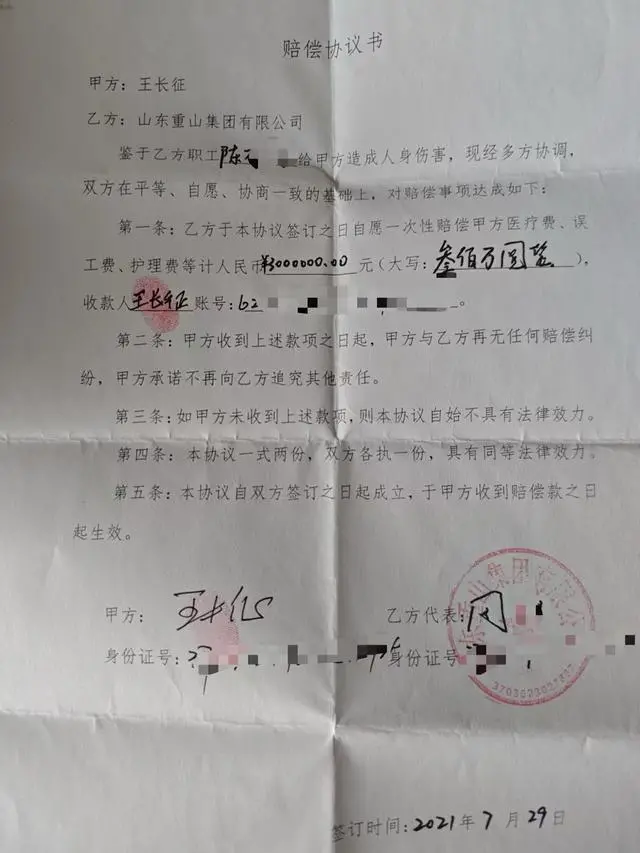 赔偿协议书
甲方：王长征
乙方：山东重山集团有限公司
鉴于乙方职工陈 给甲方造成人身伤害，现经多方协调，
双方在平等、自愿、协商一致的基础上，对赔偿事项达成如下：
第一条：乙方于本协议签订之日自愿一次性赔偿甲方医疗费、误
工费、护理费等计人民币¥3000000.00元（大写：叁佰万圆整），
收款人王长征账号：62 。
第二条：甲方收到上述款项之日起，甲方与乙方再无任何赔偿纠
纷，甲方承诺不再向乙方追究其他责任。
第三条：如甲方未收到上述款项，则本协议自始不具有法律效力。
第四条：本协议一式两份，双方各执一份，具有同等法律效力。
第五条：本协议自双方签订之日起成立，于甲方收到赔偿款之日
起生效。
甲方：王长征 乙方代表：
身份证号： 身份证号：
山集团有限公
签订时间：2021年7月29日